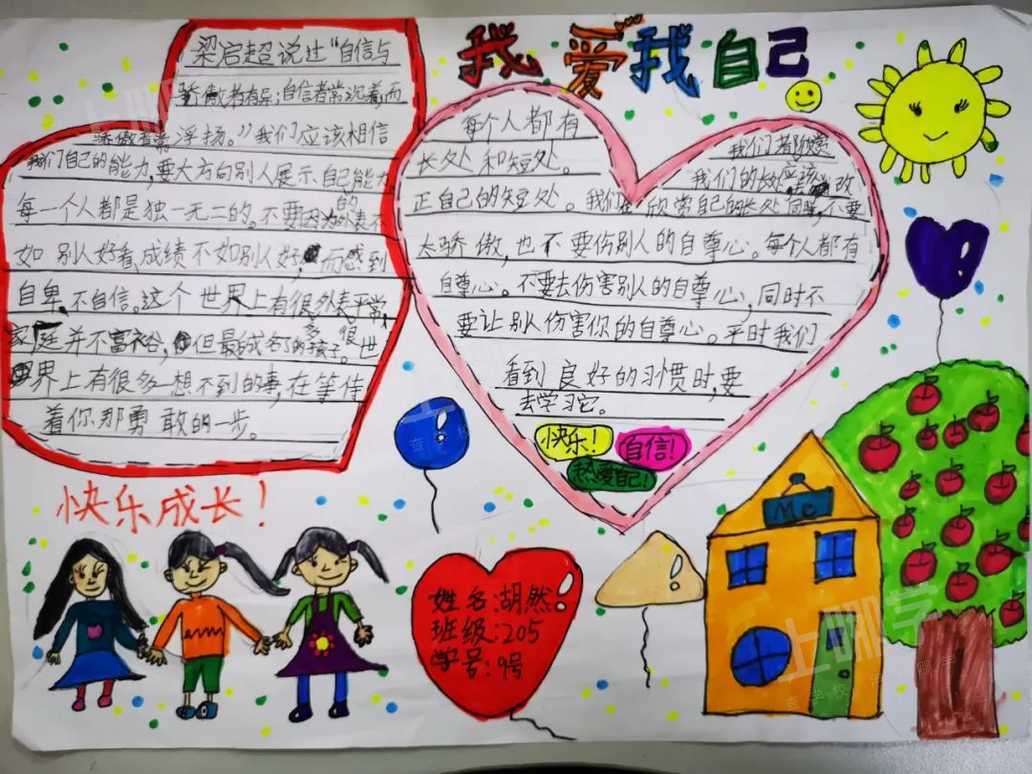 我爱我自己
梁启超说过“自信与
骄傲者有异;自信者常沉着,而
骄傲者常浮扬。”我们应该相信
我们自己的能力,要大方向别人展示自己能力
每一个人都是独一无二的。不要因为的外表不
如别人好看,成绩不如别人好,而感到
自卑、不自信。这个世界上有很多外表平常,
家庭并不富裕,但最后成名了的孩子。很
世界上有很多想不到的事,在等待
着你那勇敢的一步。
每个人都有
长处和短处。
我们都欣赏
我们的长处应该改
正自己的短处。我们在欣赏自己的长处同时,不要
太骄傲,也不要伤别人的自尊心。每个人都有
自尊心。不要去伤害别人的自尊心,同时不
要让别人伤害你的自尊心。平时我们
看到良好的习惯时,要
去学习它。
快乐!
自信!
热爱自己!
快乐成长!
姓名:胡然
班级:205
学号:9号
Mc
上哪学